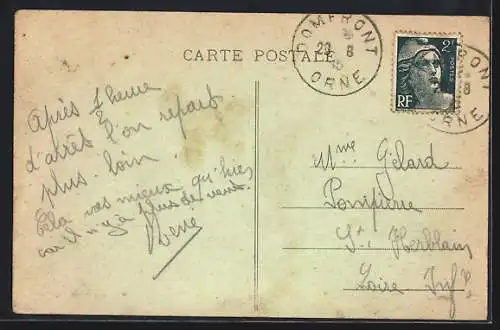 CARTE POSTALE
DOMFRONT
23 8
ORNE
2F
POSTES
RF
Après 1 heure
d'arrêt l'on repart
plus loin.
Cela vas mieux qu'hier
car il n'y a plus de vent.
Mme Gélard
St Herblain
Loire Infre